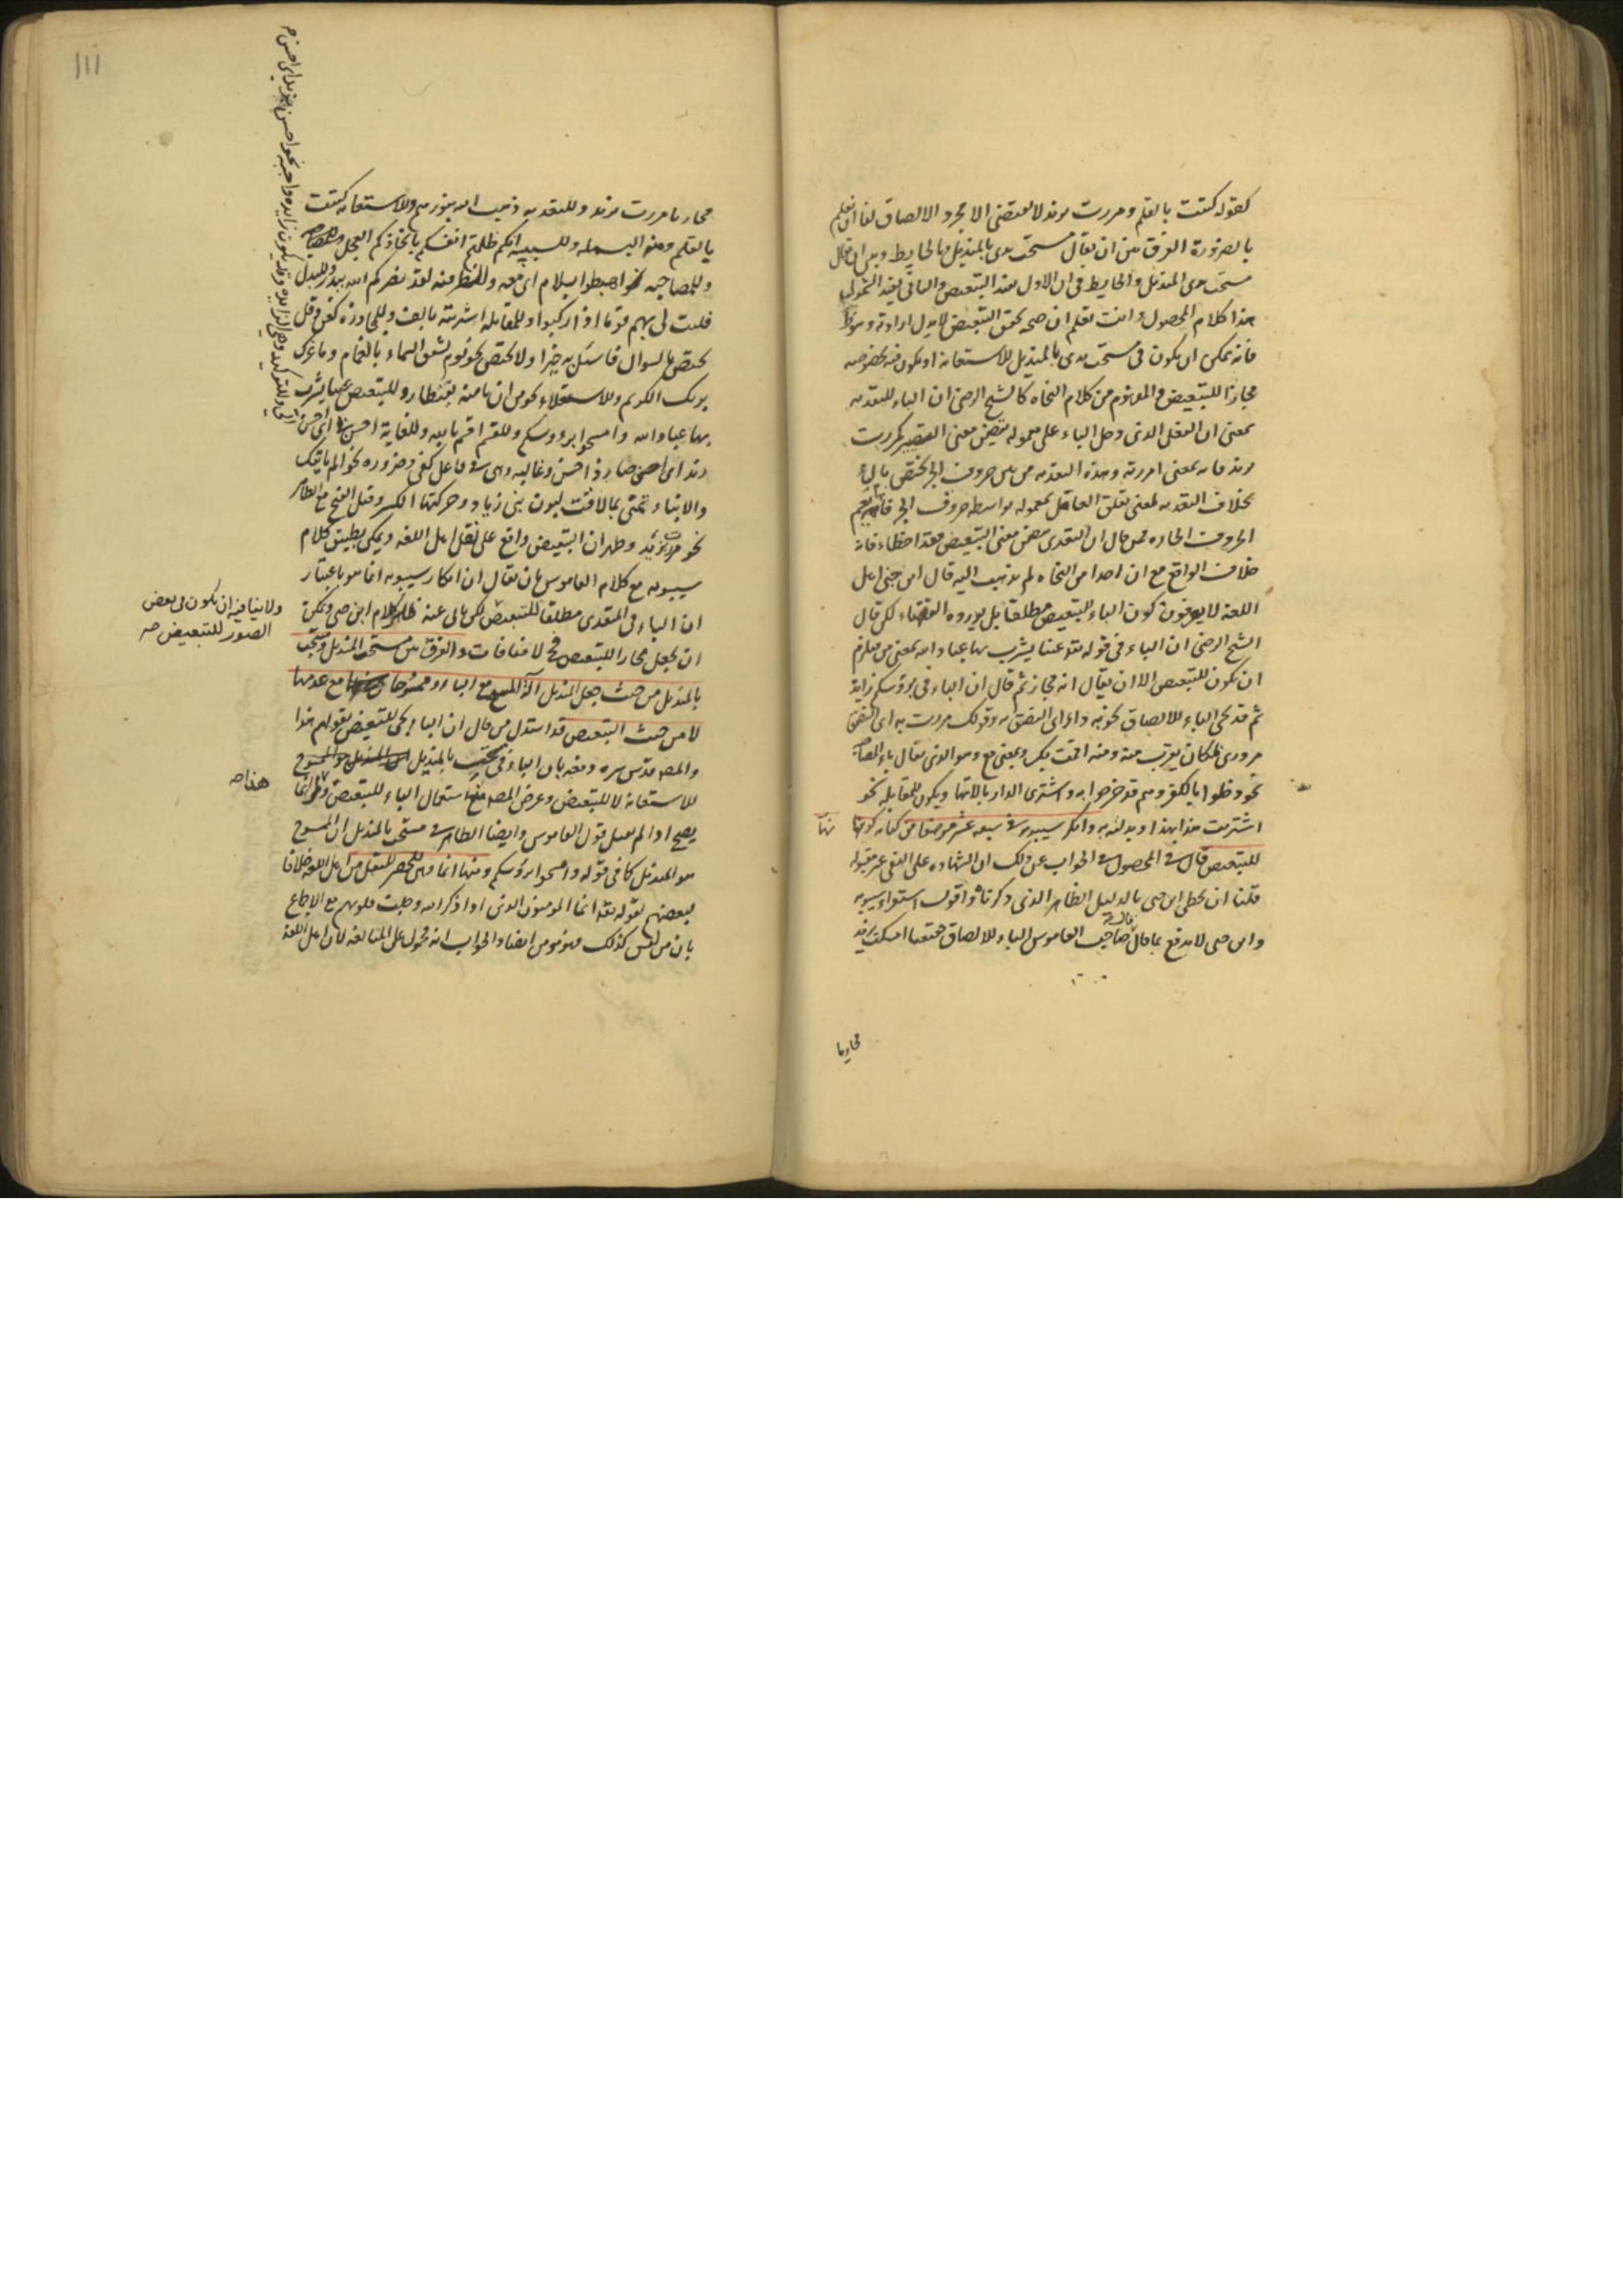 كقوله كتبت بالقلم ومررت بزيد لا يقتضى الا مجرد الالصاق لنا انا نعلم
بالضرورة الفرق بين ان يقال مسحت يدى بالمنديل وبالحايط وبين ان يقال
مسحت يدى المنديل والحايط فى ان الاول يفيد التبعيض والثانى يفيد الشمول
هذا كلام المحصول وانت تعلم ان صحه تحقق التبعيض لا يدل ارادته
فانه يمكن ان يكون فى مسحت يدى بالمنديل للاستعانه او يكون فيه بخصوصه
مجازا للتبعيض والمفهوم من كلام النحاه كالشيخ الرضى ان الباء للتعديه
بمعنى ان الفعل الذى دخل الباء على معموله تضمن معنى التصيير كمررت
بزيد فانه بمعنى امررته وهذه التعديه من بين حروف الجر تختص بالباء
بخلاف التعديه لمعنى تعلق العامل بمعموله بواسطه حروف الجر فانه يعم
الحروف الجاره فمن قال ان التعدى تتضمن معنى التبعيض فقد اخطاء فانه
خلاف الواقع مع ان احدا من النحاه لم يذهب اليه قال ابن جنى اهل
اللغة لا يعرفون كون الباء للتبعيض مطلقا بل يورده الفقهاء لكن قال
الشيخ الرضى ان الباء فى قوله تع عينا يشرب بها عباد الله بمعنى من فيلزم
ان تكون للتبعيض الا ان يقال انه مجاز ثم قال ان الباء فى برؤسكم زايدة
ثم قد تجى الباء للالصاق نحو به داء اى التصق به وقولك مررت به اى التصق
مرورى بمكان يقرب منه ومنه اقسمت بك وبمعنى مع وهو الذى يقال باء المصاحبه
نحو دخلوا بالكفر وهم قد خرجوا به واشترى الدار بالاتها ويكون للمقابله نحو
اشتريت هذا بهذا وبدلته به وانكر سيبويه فى سبعه عشر موضعا من كتابه كونها
للتبعيض قال فى المحصول فى الجواب عن ذلك ان الشهاده على النفى غير مقبوله
قلنا ان يخطى ابن جنى بالدليل الظاهر الذى ذكرناه واقول استقراء سيبويه
وابن جنى لا يدفع بما قال صاحب القاموس الباء للالصاق حقيقيا امسكت بزيد
مجازيا
١١١
مجازيا مررت بزيد وللتعديه ذهب الله بنورهم وللاستعانه كتبت
بالقلم ومنه البسمله وللسببيه انكم ظلمتم انفسكم باتخاذكم العجل
وللمصاحبه نحو اهبط بسلام اى معه وللظرفيه لقد نصركم الله ببدر وللبدل
فليت لى بهم قوما اذا ركبوا وللمقابله اشتريته بالف وللمجاوزه كعن وقيل
تختص بالسوال فاسئل به خبيرا او لا تختص نحو يوم تشقق السماء بالغمام وما غرك
بربك الكريم وللاستعلاء نحو من ان تامنه بقنطار وللتبعيض عينا يشرب
بها عباد الله وامسحوا برووسكم وللقسم اقسم بالله وللغاية احسن بى اى احسن الى
وللتوكيد وهى الزايده وقد يكون زايده واجبه نحو احسن بزيد اى احسن
زيد اى صار ذا حسن وغالبه وهى فى فاعل كفى وضروره نحو الم ياتيك
والانباء تنمى بما لاقت لبون بنى زياد وحركتها الكسر وقيل الفتح مع الظاهر
نحو مررت بزيد وظهر ان التبعيض واقع على نقل اهل اللغه ويمكن تطبيق كلام
سيبويه مع كلام القاموس بان يقال ان انكار سيبويه انما هو باعتبار
ان الباء فى المتعدى مطلقا للتبعيض لكن يابى عنه ظاهر كلام ابن جنى ويمكن
ولا ينافيه ان يكون فى بعض
الصور للتبعيض صه
ان يجعل مجازا للتبعيض فح لا منافات والفرق بين مسحت المنديل ومسحت
بالمنديل من حيث جعل المنديل آلة المسح مع الباء وممسوحا مع عدمها
لا من حيث التبعيض قد استدل من قال ان الباء تجى للتبعيض بقولهم هذا
والمصه قدس سره دفعه بان الباء فى مسحت بالمنديل
هذا صه
للاستعانة لا للتبعيض وغرض المصه منع استعمال الباء للتبعيض وهو انما
يصح اذا لم يقبل قول القاموس وايضا الظاهر فى مسحت بالمنديل ان الممسوح
هو المنديل كما فى قوله وامسحوا برؤسكم ومنها انما وهى للحصر للنقل من اهل اللغه خلافا
لبعضهم لقوله تع انما المومنون الذين اذا ذكر الله وجلت قلوبهم مع الاجماع
بان من ليس كذلك فهو مومن ايضا والجواب انه محمول على المبالغه لان اهل اللغة